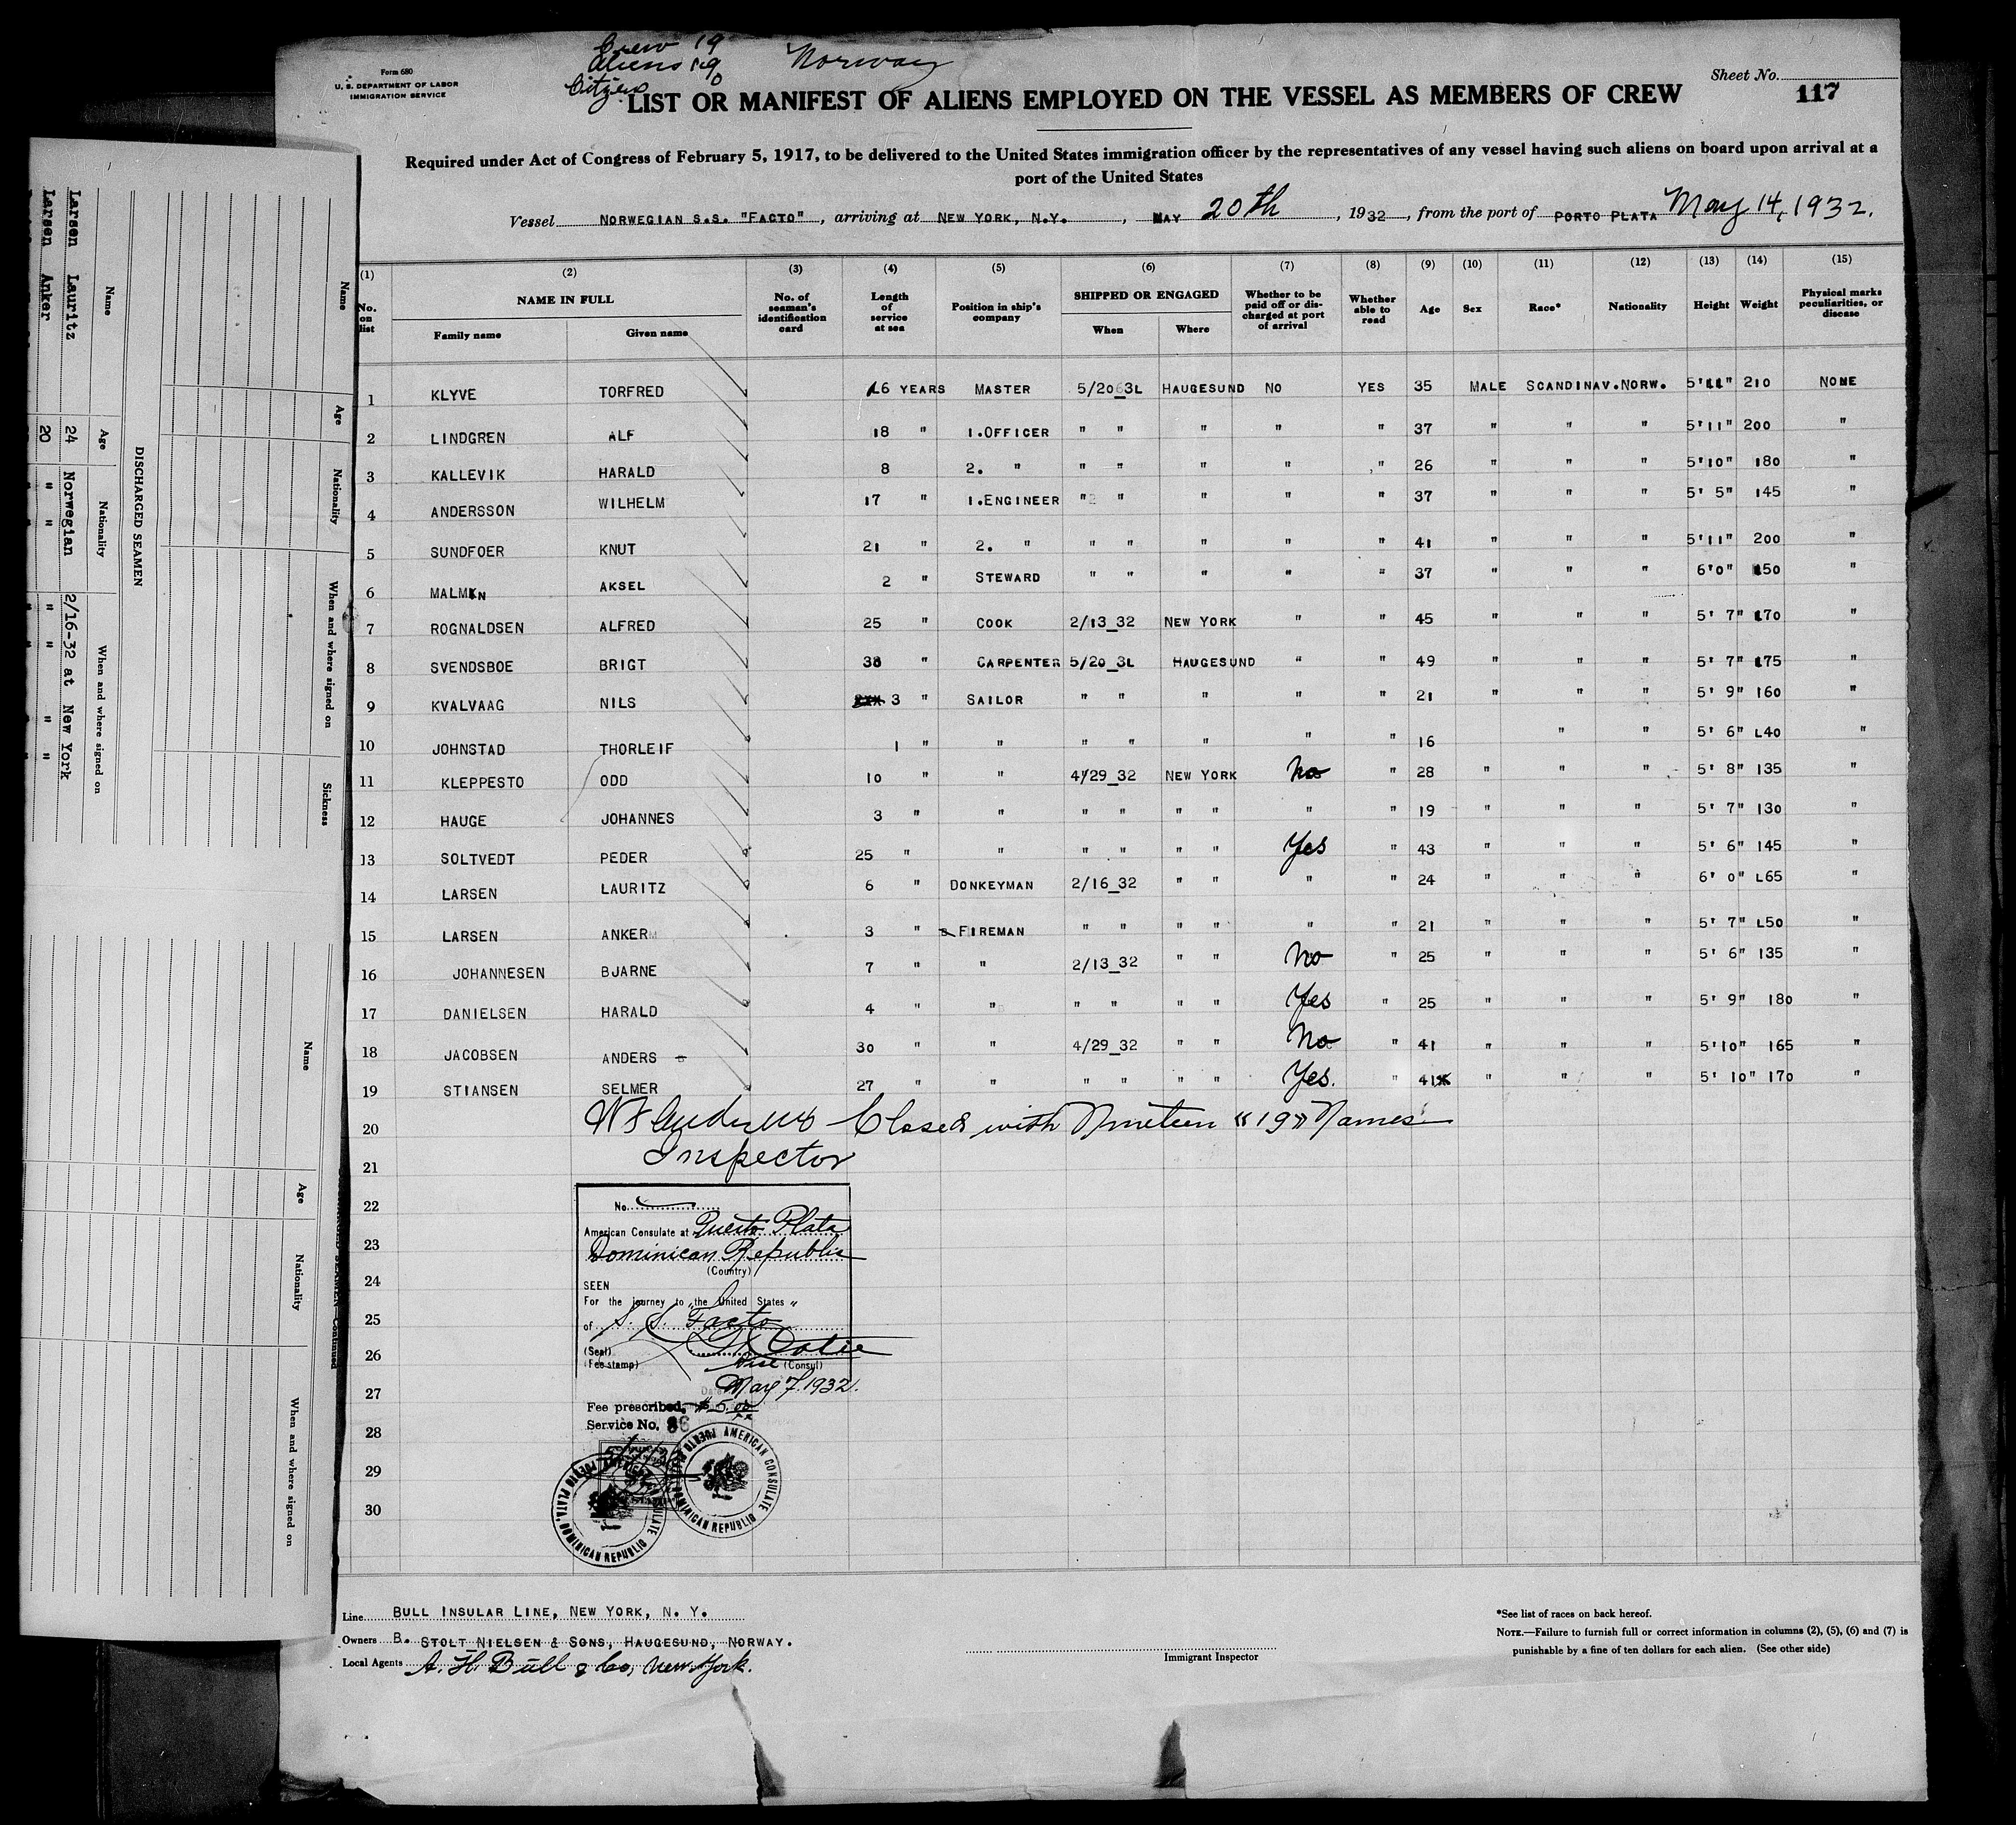 Crew 19
Aliens 19 Norway
Citizens 0
Form 680
U. S. DEPARTMENT OF LABOR
IMMIGRATION SERVICE
Sheet No.
117
LIST OR MANIFEST OF ALIENS EMPLOYED ON THE VESSEL AS MEMBERS OF CREW
Required under Act of Congress of February 5, 1917, to be delivered to the United States immigration officer by the representatives of any vessel having such aliens on board upon arrival at a
port of the United States
Vessel NORWEGIAN S.S. "FACTO", arriving at NEW YORK, N.Y., MAY 20th, 1932, from the port of PORTO PLATA May 14, 1932.
(1) (2) (3) (4) (5) (6) (7) (8) (9) (10) (11) (12) (13) (14) (15)
No. on list NAME IN FULL Family name Given name No. of seaman's identification card Length of service at sea Position in ship's company SHIPPED OR ENGAGED When Where Whether to be paid off or discharged at port of arrival Whether able to read Age Sex Race* Nationality Height Weight Physical marks peculiarities, or disease
1 KLYVE TORFRED 16 YEARS MASTER 5/20_3L HAUGESUND NO YES 35 MALE SCANDINAV. NORW. 5'11" 210 NONE
2 LINDGREN ALF 18 " 1.OFFICER " " " " " 37 " " " 5'11" 200 "
3 KALLEVIK HARALD 8 2. " " " " " " 26 " " " 5'10" 180 "
4 ANDERSSON WILHELM 17 " 1.ENGINEER " " " " " 37 " " " 5' 5" 145 "
5 SUNDFOER KNUT 21 " 2. " " " " " " 41 " " " 5'11" 200 "
6 MALMIN AKSEL 2 " STEWARD " " " " " 37 " " " 6'0" 150 "
7 ROGNALDSEN ALFRED 25 " COOK 2/13_32 NEW YORK " " 45 " " " 5' 7" 170 "
8 SVENDSBOE BRIGT 38 " CARPENTER 5/20_3L HAUGESUND " " 49 " " " 5' 7" 175 "
9 KVALVAAG NILS 3 " SAILOR " " " " " 21 " " " 5' 9" 160 "
10 JOHNSTAD THORLEIF 1 " " " " " " " 16 " " 5' 6" L40 "
11 KLEPPESTO ODD 10 " " 4/29_32 NEW YORK No " 28 " " " 5' 8" 135 "
12 HAUGE JOHANNES 3 " " " " " " " " 19 " " " 5' 7" 130 "
13 SOLTVEDT PEDER 25 " " " " " " Yes " 43 " " " 5' 6" 145 "
14 LARSEN LAURITZ 6 " DONKEYMAN 2/16_32 " " " " 24 " " " 6' 0" L65 "
15 LARSEN ANKER 3 " FIREMAN " " " " " " 21 " " " 5' 7" L50 "
16 JOHANNESEN BJARNE 7 " " 2/13_32 " " No " 25 " " " 5' 6" 135 "
17 DANIELSEN HARALD 4 " " " " " " Yes " 25 " " " 5' 9" 180 "
18 JACOBSEN ANDERS 30 " " 4/29_32 " " No " 41 " " " 5'10" 165 "
19 STIANSEN SELMER 27 " " " " " " Yes. " 41 " " " 5' 10" 170 "
20 Closed with Nineteen "19" Names
21 Inspector
22
23
24
25
26
27
28
29
30
No.
American Consulate at Puerto Plata
Dominican Republic
(Country)
SEEN
For the journey to the United States
of S. S. "Facto"
(Seal)
(Fee stamp) Vice (Consul)
May 7, 1932.
Fee prescribed, $5.00
Service No. 86
AMERICAN CONSULATE PUERTO PLATA, DOMINICAN REPUBLIC
AMERICAN CONSULATE PUERTO PLATA, DOMINICAN REPUBLIC
Line BULL INSULAR LINE, NEW YORK, N. Y.
Owners B. STOLT_NIELSEN & SONS, HAUGESUND, NORWAY.
Local Agents A. H. Bull & Co, New York.
Immigrant Inspector
*See list of races on back hereof.
NOTE.—Failure to furnish full or correct information in columns (2), (5), (6) and (7) is
punishable by a fine of ten dollars for each alien. (See other side)
Name Age Nationality When and where signed on Sickness
DISCHARGED SEAMEN
Name Age Nationality When and where signed on
Larsen Lauritz 24 Norwegian 2/16-32 at New York
Larsen Anker 20 " " " " " "
Name Age Nationality When and where signed on